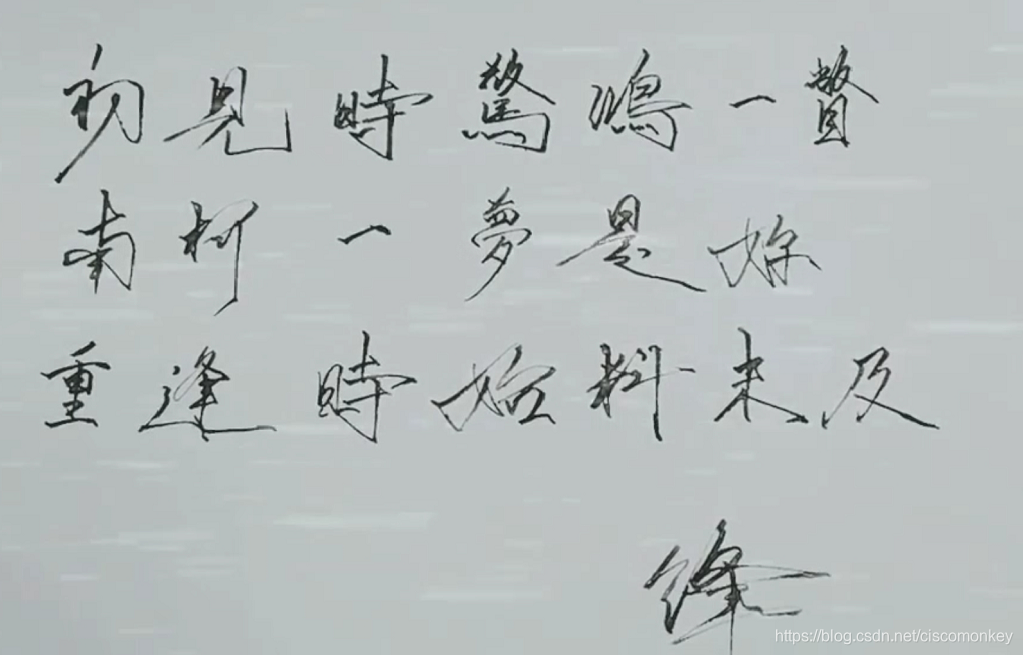 初見時驚鴻一瞥
南柯一夢是妳
重逢時始料未及
https://blog.csdn.net/ciscomonkey